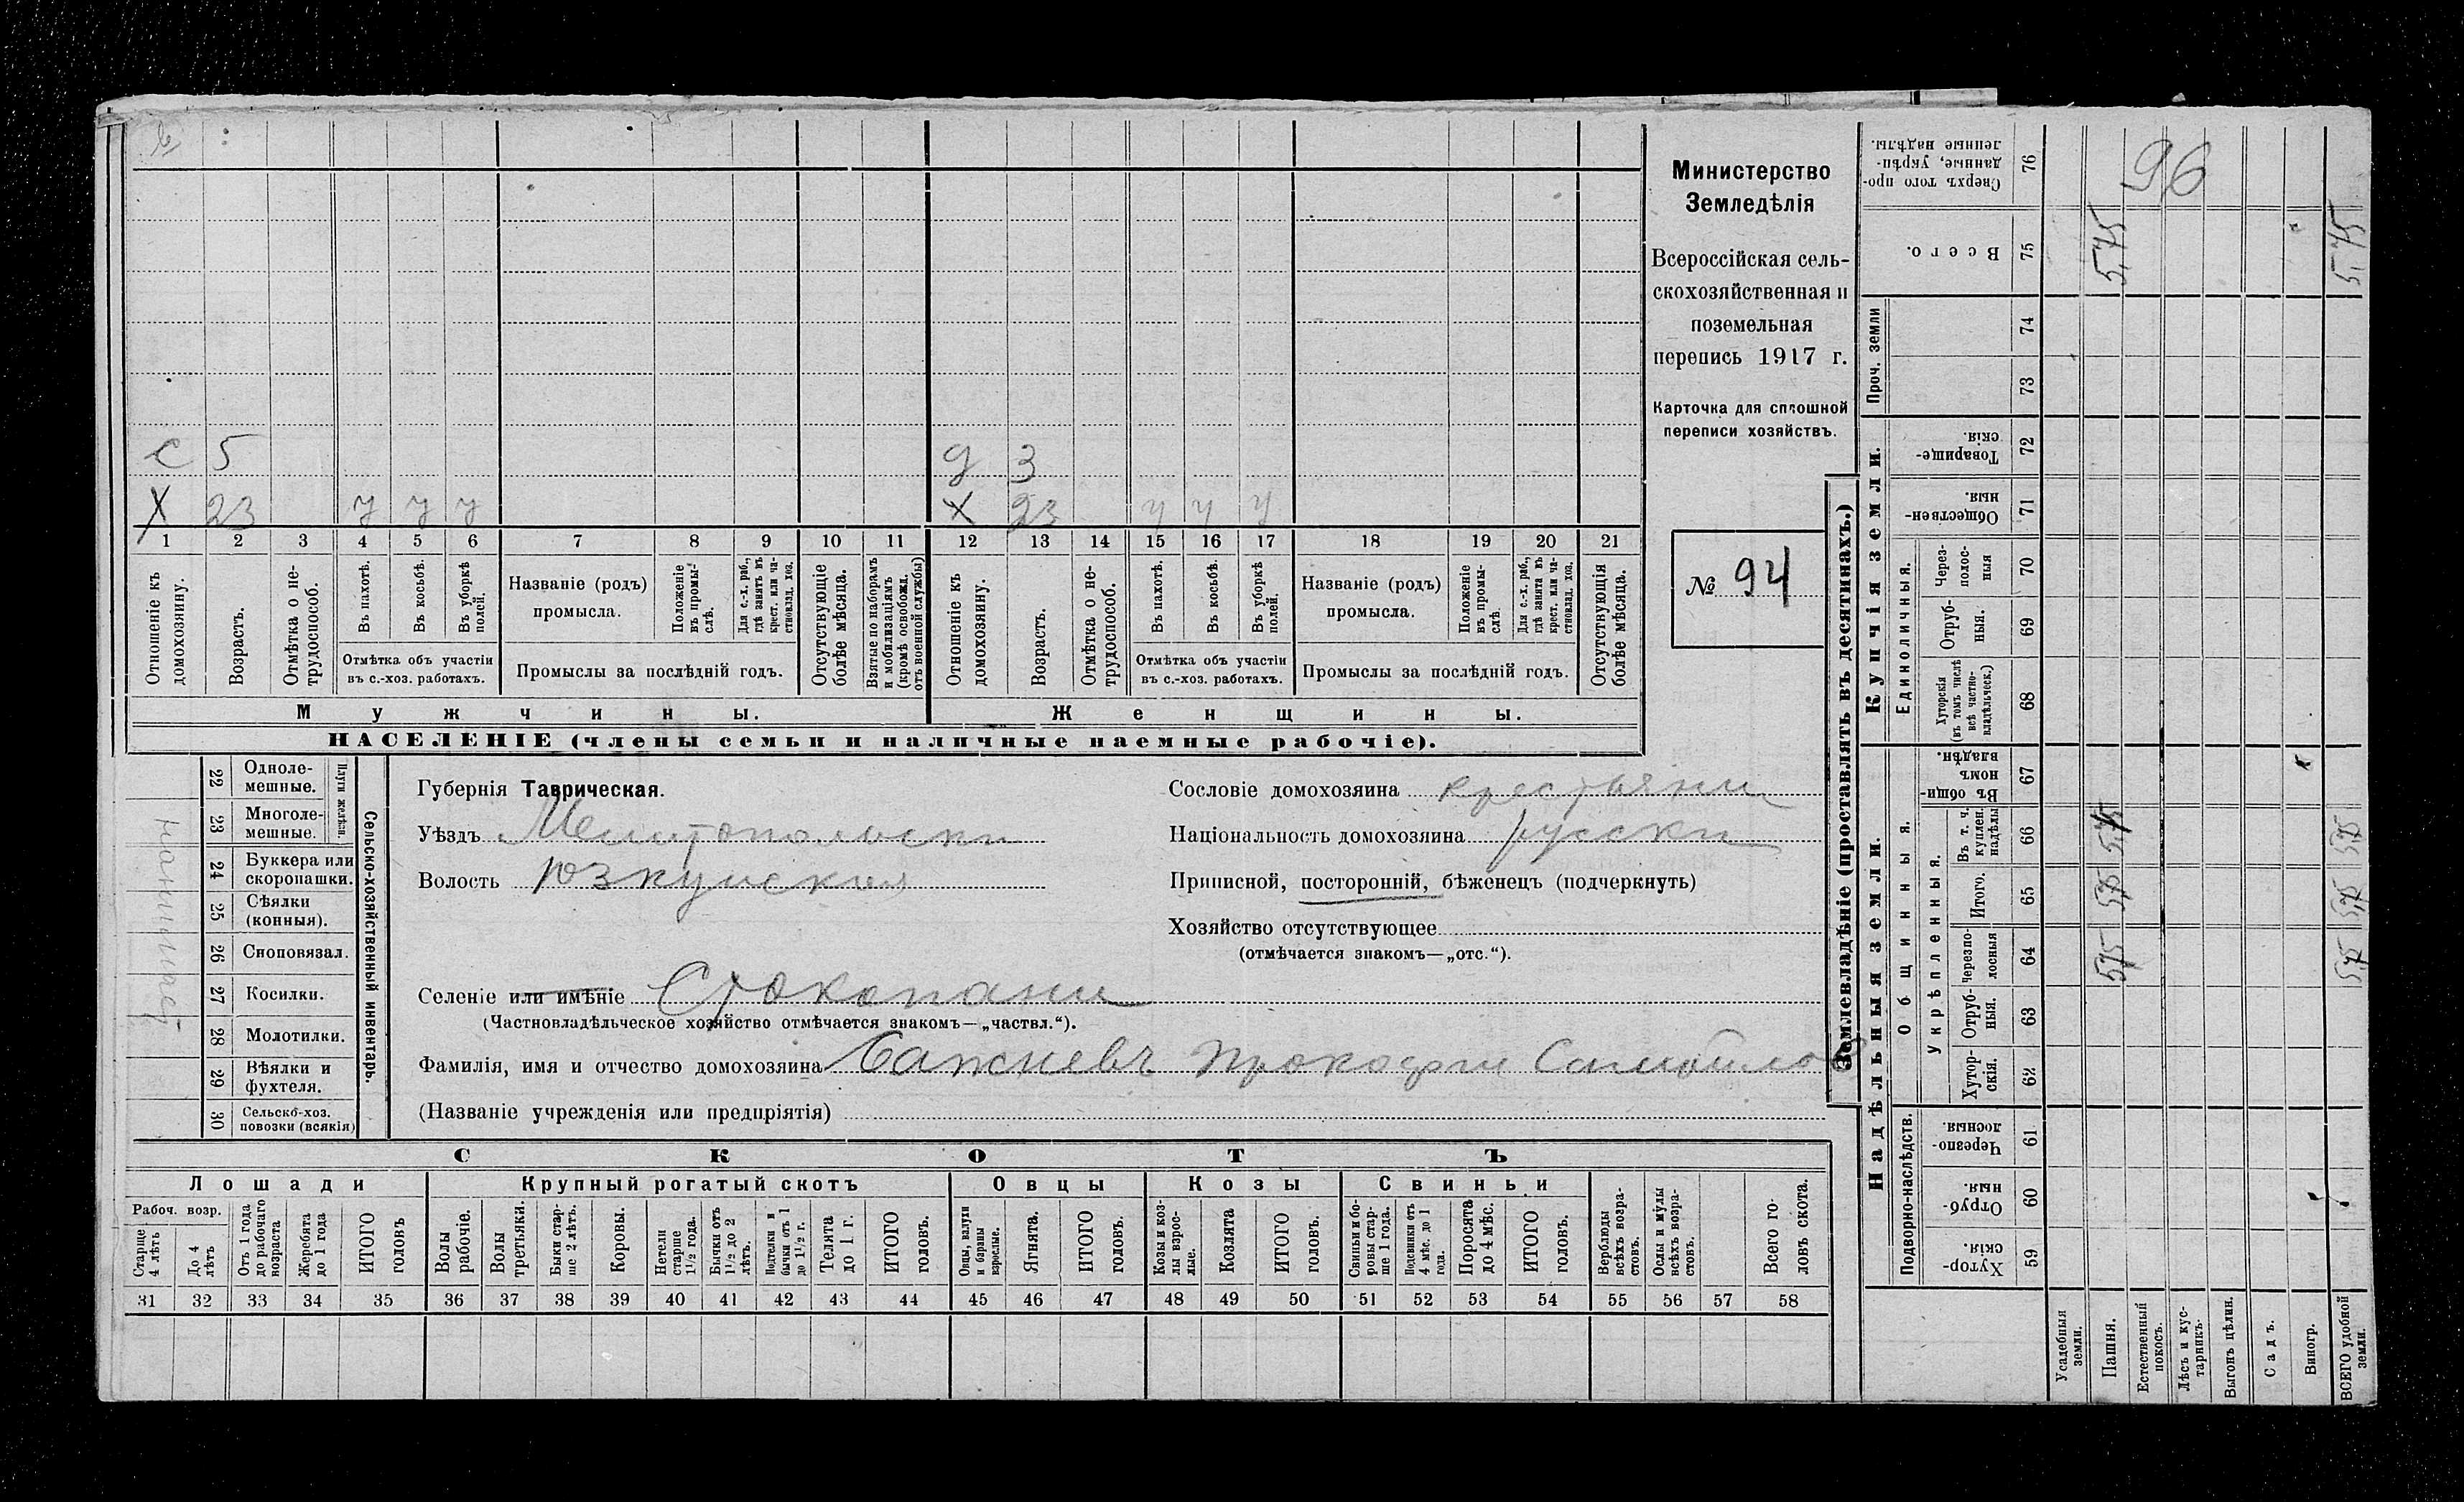 Министерство
Земледѣлія
Всероссійская сель-
скохозяйственная и
поземельная
перепись 1917 г.
Карточка для сплошной
переписи хозяйствъ.
№ 94
с 5 д 3
X 23 у у у X 23 у у у
1 2 3 4 5 6 7 8 9 10 11 12 13 14 15 16 17 18 19 20 21
Отношеніе къ домохозяину.
Возрастъ.
Отмѣтка о не-трудоспособ.
Въ пахотѣ.
Въ косьбѣ.
Въ уборкѣ полей.
Отмѣтка объ участіи
въ с.-хоз. работахъ.
Названіе (родъ)
промысла.
Положеніе въ промы-слѣ.
Для с.-х. раб., гдѣ занятъ въ крест. или ча-стновлад. хоз.
Промыслы за послѣдній годъ.
Отсутствующіе болѣе мѣсяца.
Взятые по наборамъ и мобилизаціямъ (кромѣ освобожд. отъ военной службы)
Отношеніе къ домохозяину.
Возрастъ.
Отмѣтка о не-трудоспособ.
Въ пахотѣ.
Въ косьбѣ.
Въ уборкѣ полей.
Отмѣтка объ участіи
въ с.-хоз. работахъ.
Названіе (родъ)
промысла.
Положеніе въ промы-слѣ.
Для с.-х. раб., гдѣ занята въ крест. или ча-стновлад. хоз.
Промыслы за послѣдній годъ.
Отсутствующія болѣе мѣсяца.
Мужчины. Женщины.
НАСЕЛЕНІЕ (члены семьи и наличные наемные рабочіе).
Сельско-хозяйственный инвентарь.
Плуги желѣзн.
22 Одноле-мешные.
23 Многоле-мешные.
24 Буккера или скоропашки.
25 Сѣялки (конныя).
26 Сноповязал.
27 Косилки.
28 Молотилки.
29 Вѣялки и фухтеля.
30 Сельско-хоз. повозки (всякія)
Губернія Таврическая.
Уѣздъ Мелитопольски
Волость Юзкуйская
Сословіе домохозяина крестьянин
Національность домохозяина русски
Приписной, посторонній, бѣженецъ (подчеркнуть)
Хозяйство отсутствующее
(отмѣчается знакомъ—„отс.“).
Селеніе или имѣніе Стокопани
(Частновладѣльческое хозяйство отмѣчается знакомъ—„частвл.“).
Фамилія, имя и отчество домохозяина Бажневъ Прокофги Самойлов
(Названіе учрежденія или предпріятія)
СКОТЪ
Лошади Крупный рогатый скотъ Овцы Козы Свиньи
Рабоч. возр.
Старше 4 лѣтъ
До 4 лѣтъ
Отъ 1 года до рабочаго возраста
Жеребята до 1 года
ИТОГО головъ
Волы рабочіе.
Волы третьяки.
Быки стар-ше 2 лѣтъ.
Коровы.
Нетели старше 1½ года.
Бычки отъ 1½ до 2 лѣтъ.
Подтелки и бычки отъ 1 до 1½ г.
Телята до 1 г.
ИТОГО головъ.
Овцы, валухи и бараны взрослые.
Ягнята.
ИТОГО головъ.
Козы и коз-лы взрос-лые.
Козлята
ИТОГО головъ.
Свиньи и бо-ровы стар-ше 1 года.
Подсвинки отъ 4 мѣс. до 1 года.
Поросята до 4 мѣс.
ИТОГО головъ.
Верблюды всѣхъ возра-стовъ.
Ослы и мулы всѣхъ возра-стовъ.
Всего го-ловъ скота.
31 32 33 34 35 36 37 38 39 40 41 42 43 44 45 46 47 48 49 50 51 52 53 54 55 56 57 58
Землевладѣніе (проставлять въ десятинахъ.)
96
76 Сверхъ того про-данные, укрѣп-ленные надѣлы.
75 Всего. 5,75 5,75
Проч. земли
74
73
Купчія земли.
72 Товарище-скія.
71 Обществен-ныя.
Единоличныя.
70 Через-полос-ныя
69 Отруб-ныя.
68 Хуторскія (въ томъ числѣ всѣ частно-владѣльческ.)
Надѣльныя земли.
Общинныя.
67 Въ общи-номъ владѣн.
Укрѣпленныя.
66 Въ т. ч. куплен. надѣлы 5,75 5,75
65 Итого. 5,75 5,75
64 Черезпо-лосныя 5,75 5,75
63 Отруб-ныя.
62 Хутор-скія.
Подворно-наслѣдств.
61 Черезпо-лосныя.
60 Отруб-ныя.
59 Хутор-скія.
Усадебныя земли.
Пашня.
Естественный покосъ.
Лѣсъ и кус-тарникъ.
Выгонъ цѣлин.
Садъ.
Виногр.
ВСЕГО удобной земли.